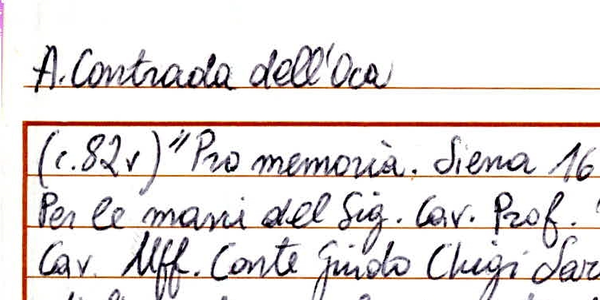 A. Contrada dell'Oca
(c. 82v) "Pro memoria. Siena 16
Per le mani del Sig. Cav. Prof.
Cav. Uff. Conte Guido Chigi Sar